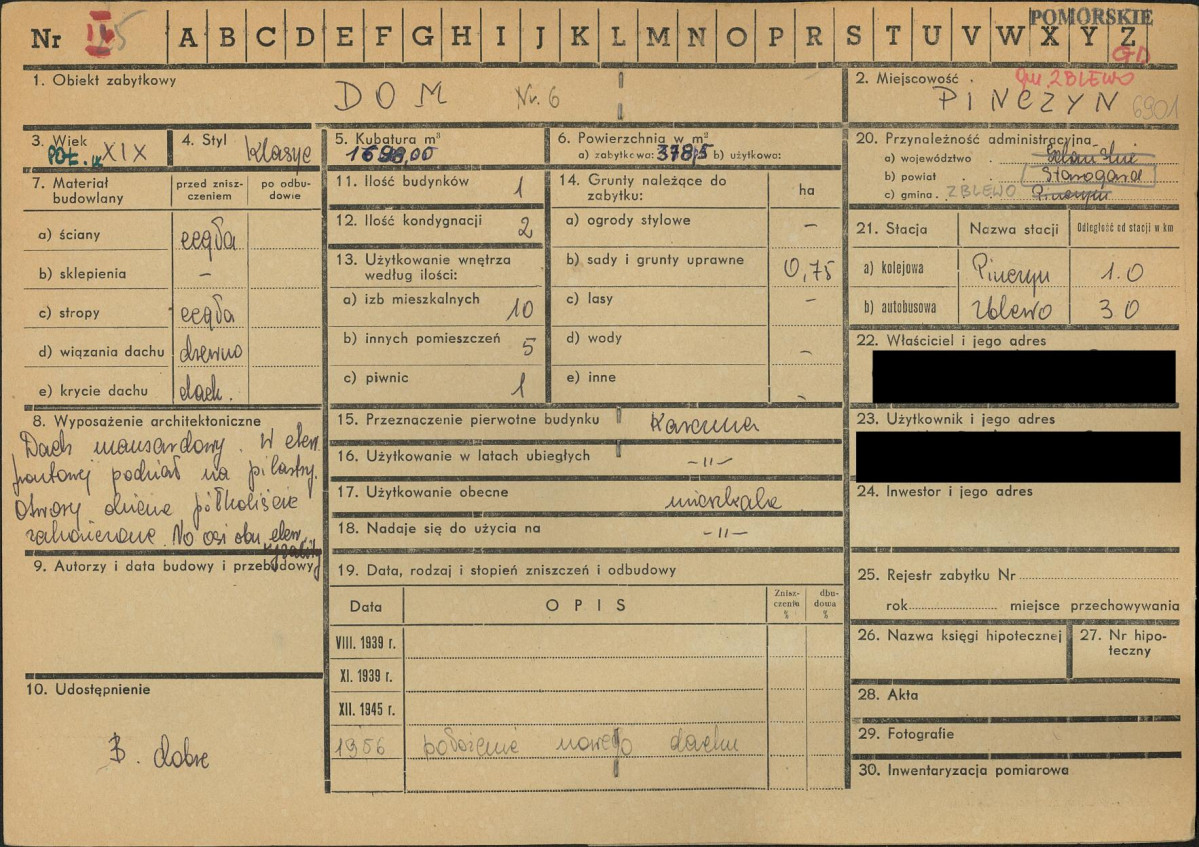 POMORSKIE
Nr A B C D E F G H I J K L M N O P R S T U V W X Y Z
GD
1. Obiekt zabytkowy
DOM Nr. 6
2. Miejscowość
gm. ZBLEWO
PINCZYN 6901
3. Wiek
POŁ. XIX
4. Styl
klasyc
5. Kubatura m³
6. Powierzchnia w m²
a) zabytkowa: 378,5 b) użytkowa:
7. Materiał budowlany
przed zniszczeniem
po odbudowie
a) ściany cegła
b) sklepienia –
c) stropy cegła
d) wiązania dachu drewno
e) krycie dachu dach.
8. Wyposażenie architektoniczne
Dach mansardowy. W elew.
frontowej podział na pilastry.
Otwory okienne półkoliście
zakończone. Na osi obu elew.
9. Autorzy i data budowy i przebudowy
10. Udostępnienie
B. dobre
11. Ilość budynków 1
12. Ilość kondygnacji 2
13. Użytkowanie wnętrza
według ilości:
a) izb mieszkalnych 10
b) innych pomieszczeń 5
c) piwnic 1
14. Grunty należące do
zabytku:
ha
a) ogrody stylowe –
b) sady i grunty uprawne 0,75
c) lasy –
d) wody –
e) inne -
15. Przeznaczenie pierwotne budynku Karczma
16. Użytkowanie w latach ubiegłych –"–
17. Użytkowanie obecne mieszkalne
18. Nadaje się do użycia na –"–
19. Data, rodzaj i stopień zniszczeń i odbudowy
Data OPIS Zniszczenia % dbudowa %
VIII. 1939 r.
XI. 1939 r.
XII. 1945 r.
1956 położenie nowego dachu
20. Przynależność administracyjna
a) województwo Gdańskie
b) powiat Starogard
c) gmina ZBLEWO Pinczyn
21. Stacja Nazwa stacji Odległość od stacji w km
a) kolejowa Pinczyn 1.0
b) autobusowa Zblewo 3.0
22. Właściciel i jego adres
23. Użytkownik i jego adres
24. Inwestor i jego adres
25. Rejestr zabytku Nr
rok miejsce przechowywania
26. Nazwa księgi hipotecznej
27. Nr hipoteczny
28. Akta
29. Fotografie
30. Inwentaryzacja pomiarowa